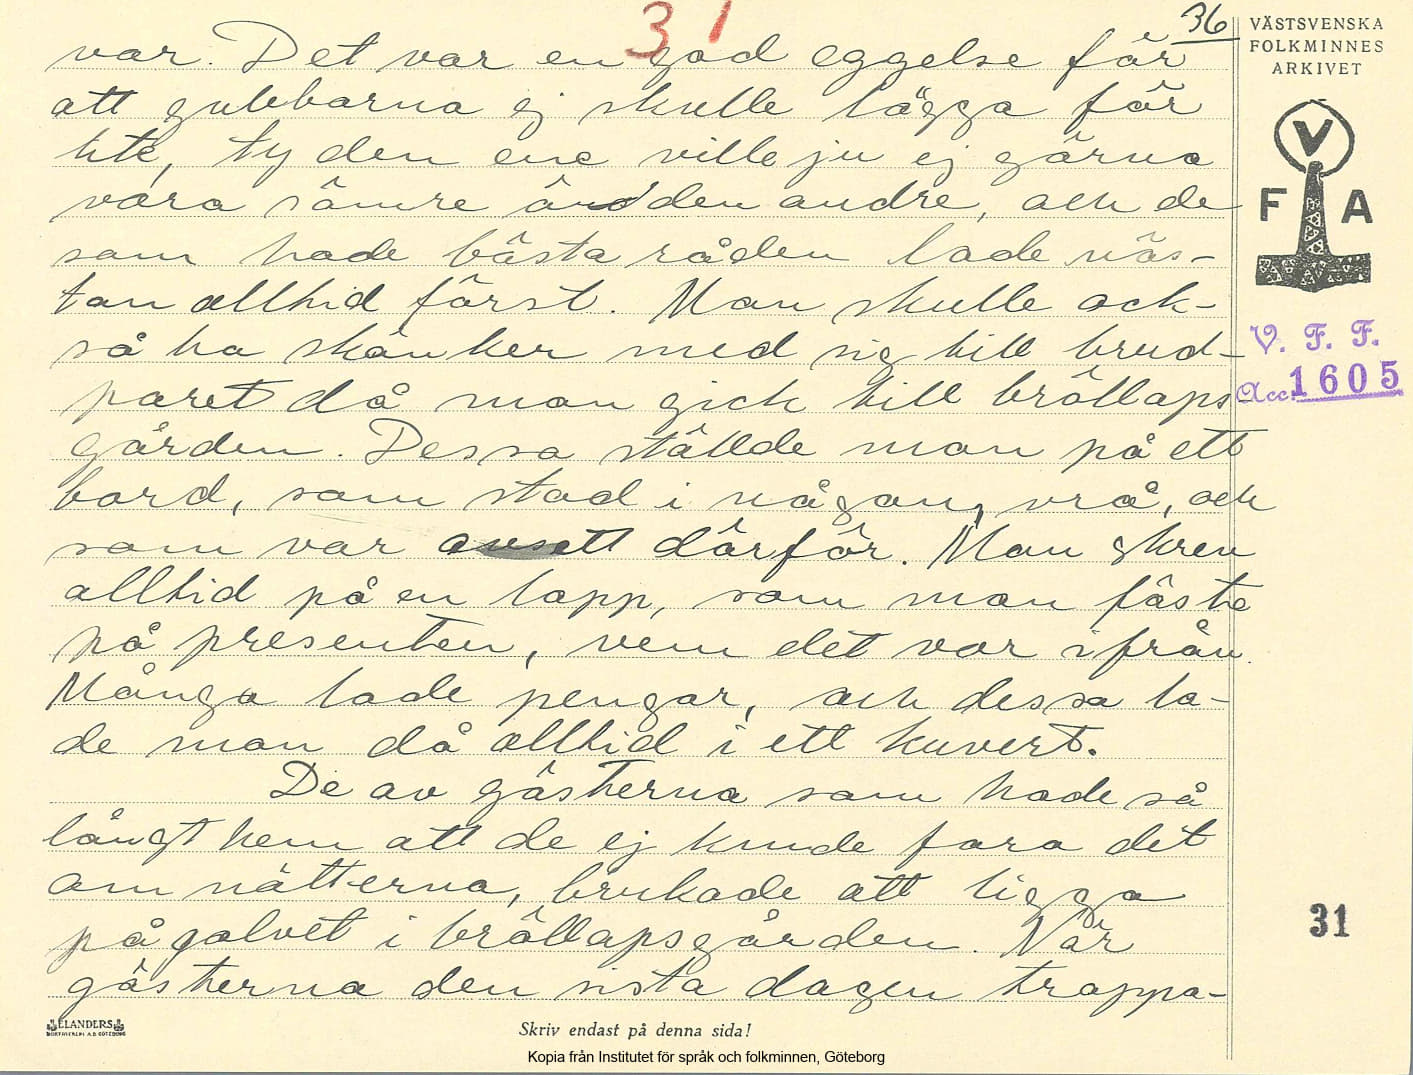 31
36
VÄSTSVENSKA
FOLKMINNES
ARKIVET
V
F A
V. F. F.
Acc. 1605
var. Det var en god eggelse för
att gubbarna ej skulle lägga för
lite, ty den ene ville ju ej gärna
vara sämre än den andre, och de
som hade bästa råden lade näs-
tan alltid först. Man skulle ock-
så ha skänker med sig till brud-
paret då man gick till bröllaps-
gården. Dessa ställde man på ett
bord, som stod i någon vrå, och
som var avsett därför. Man skrev
alltid på en lapp, som man fäste
på presenten, vem det var ifrån.
Många lade pengar, och dessa la-
de man då alltid i ett kuvert.
De av gästerna som hade så
långt hem att de ej kunde fara dit
om nätterna, brukade att ligga
på golvet i bröllapsgården. När
gästerna den sista dagen trappa-
31
ELANDERS
BOKTRYCKERI A.B. GÖTEBORG
Skriv endast på denna sida!
Kopia från Institutet för språk och folkminnen, Göteborg